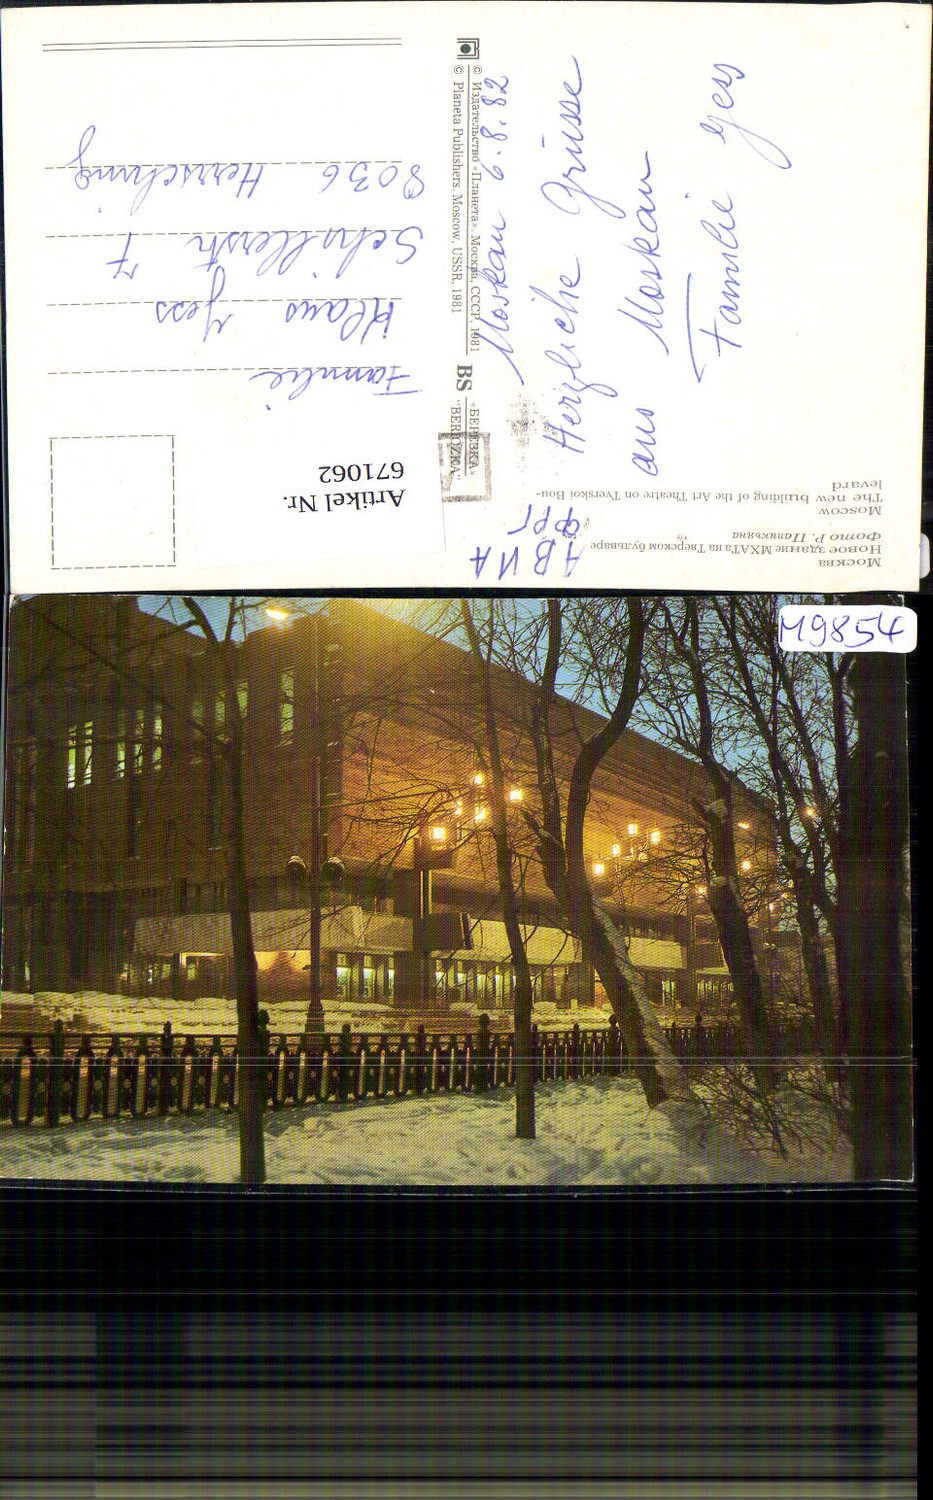 Москва
Новое здание МХАТа на Тверском бульваре
Фото Р. Папикьяна
Moscow
The new building of the Art Theatre on Tverskoi Bou-
levard
АВИА
ФРГ
Moskau 6.8.82
Herzliche Grüsse
aus Moskau
Familie Yess
© Издательство «Планета». Москва, СССР, 1981
© Planeta Publishers. Moscow, USSR, 1981
BS
«БЕРЁЗКА»
"BERIOZKA"
Artikel Nr.
671062
Familie
Klaus Yess
Schillerstr 7
8036 Herrsching
M9854